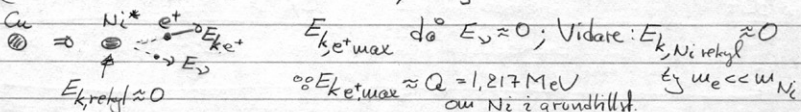 Cu Ni* e⁺
⇒ E_k,e⁺
E_ν
E_k,rekyl ≈ 0
E_k,e⁺max då E_ν ≈ 0 ; Vidare: E_k,Ni rekyl ≈ 0
∴ E_k e⁺,max ≈ Q = 1,217 MeV ty m_e << m_Ni
om Ni i grundtillst.